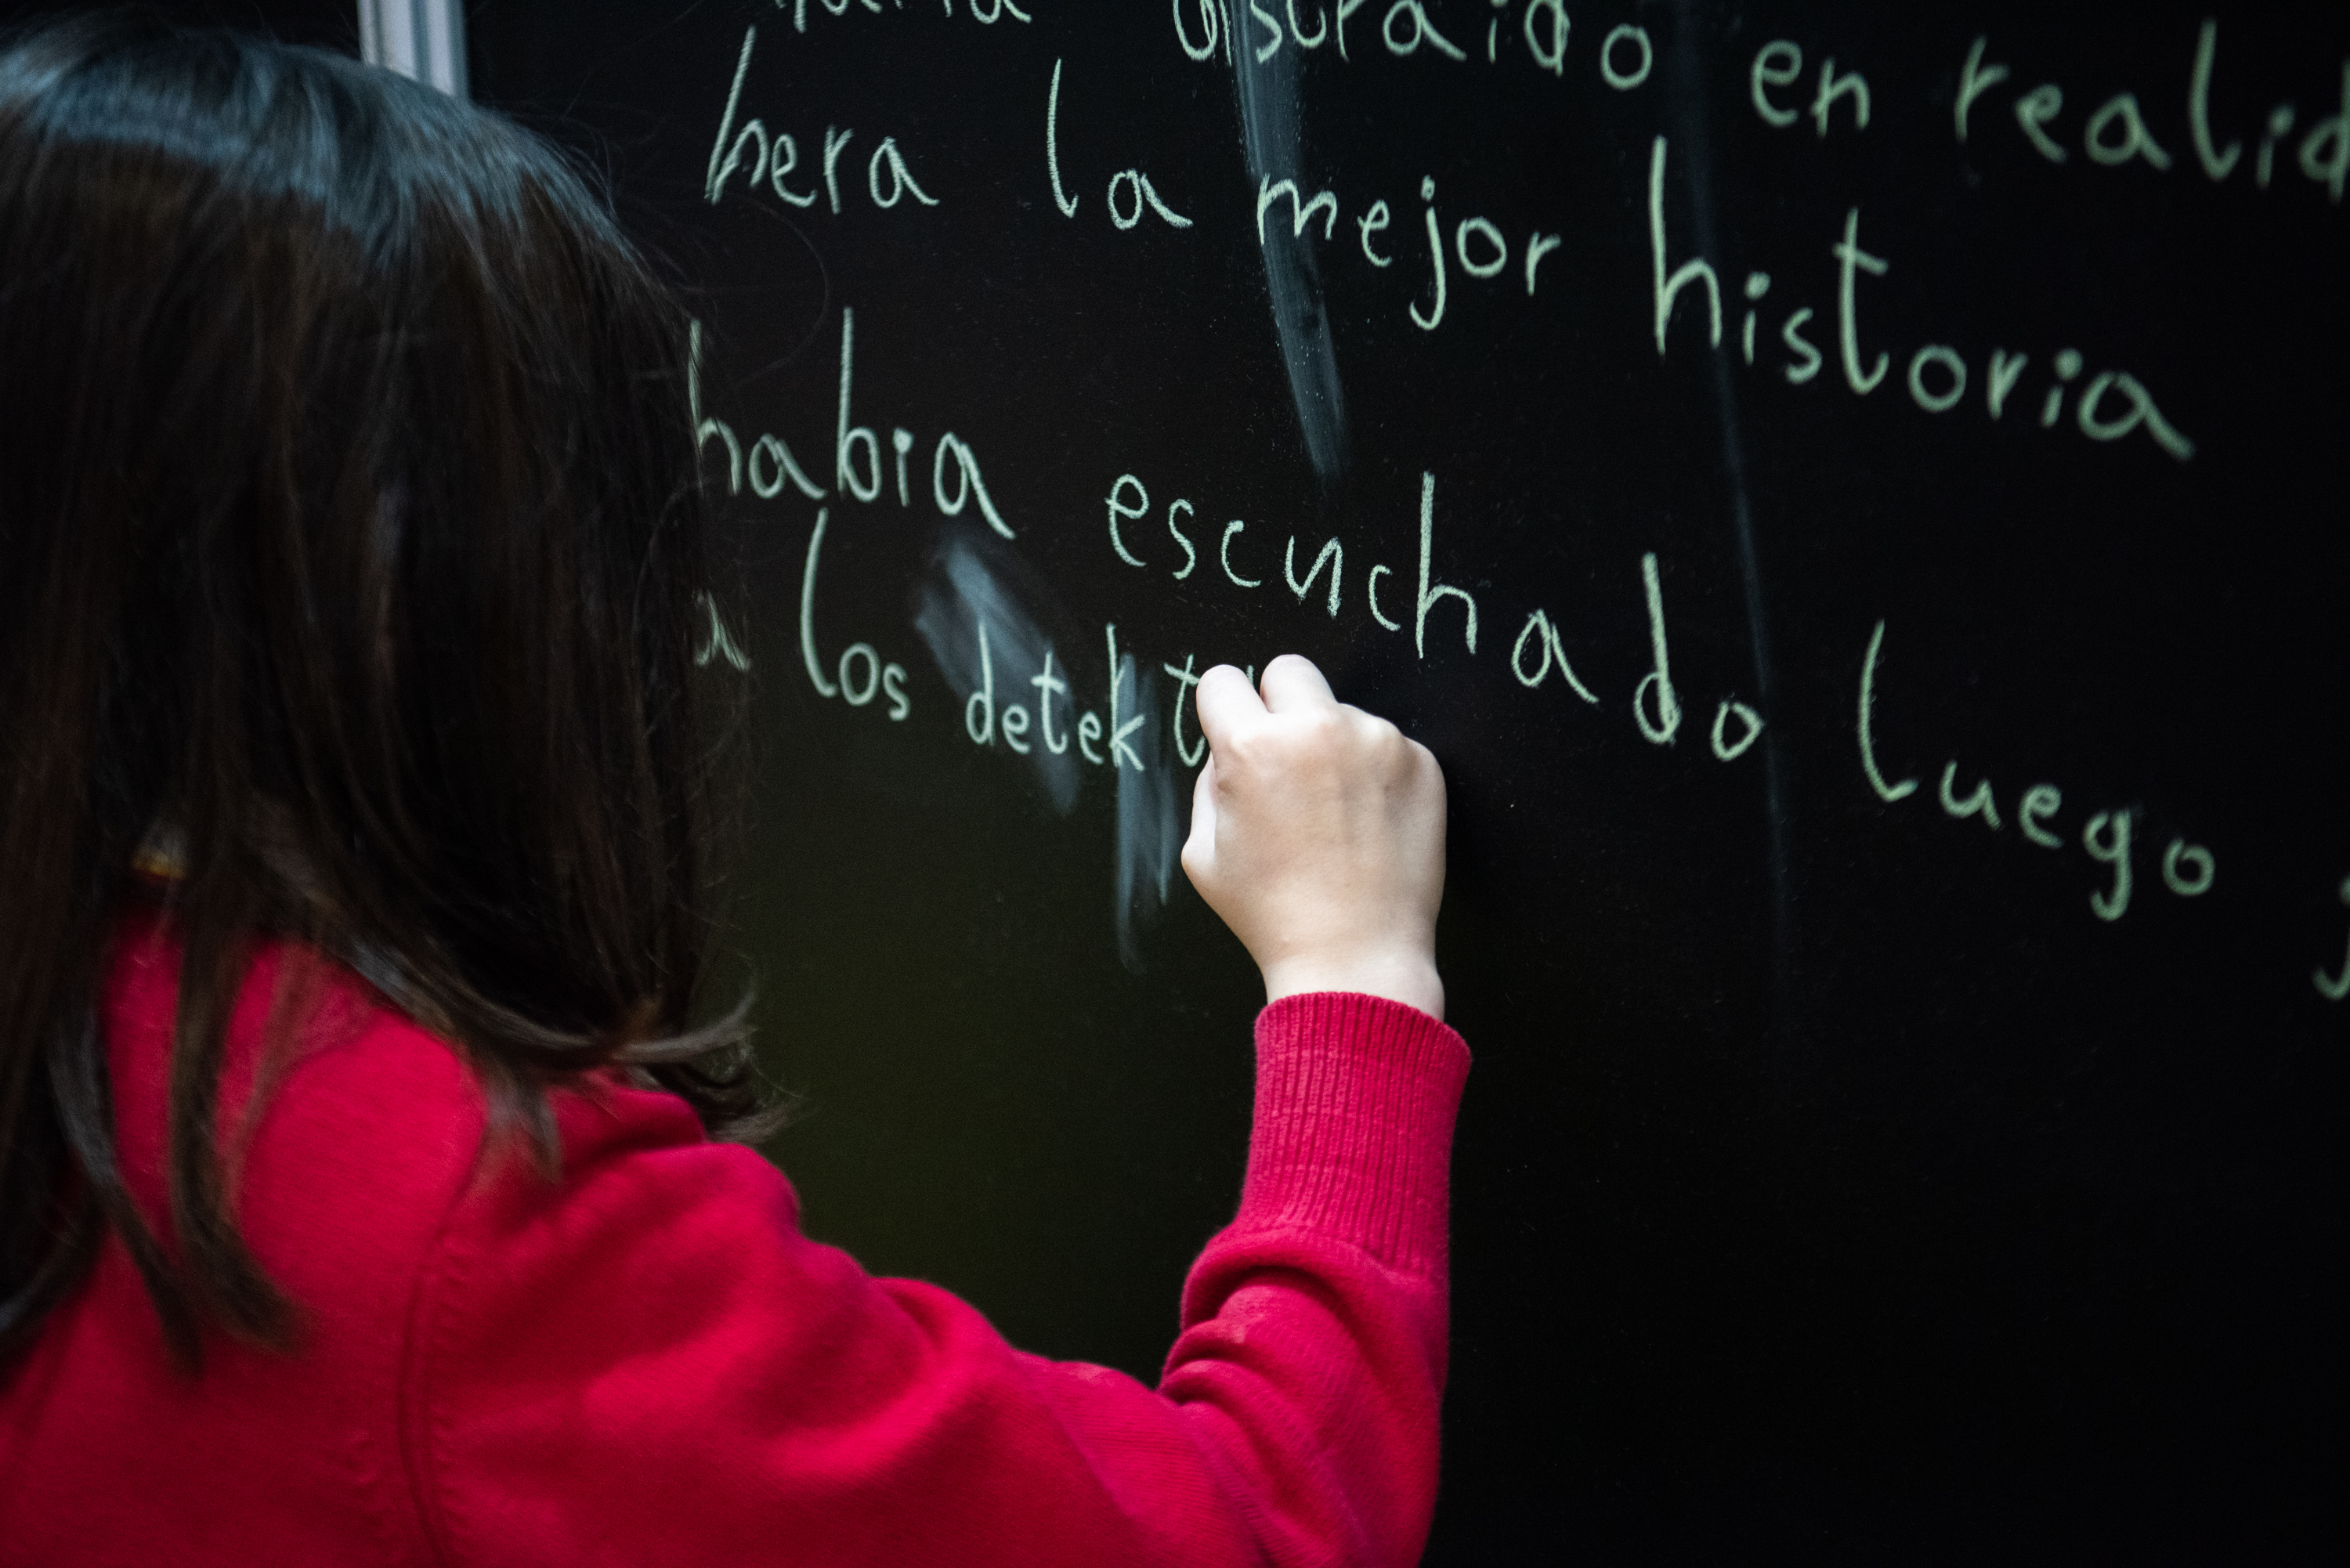 en realid
hera la mejor historia
habia escuchado luego
a los detekt